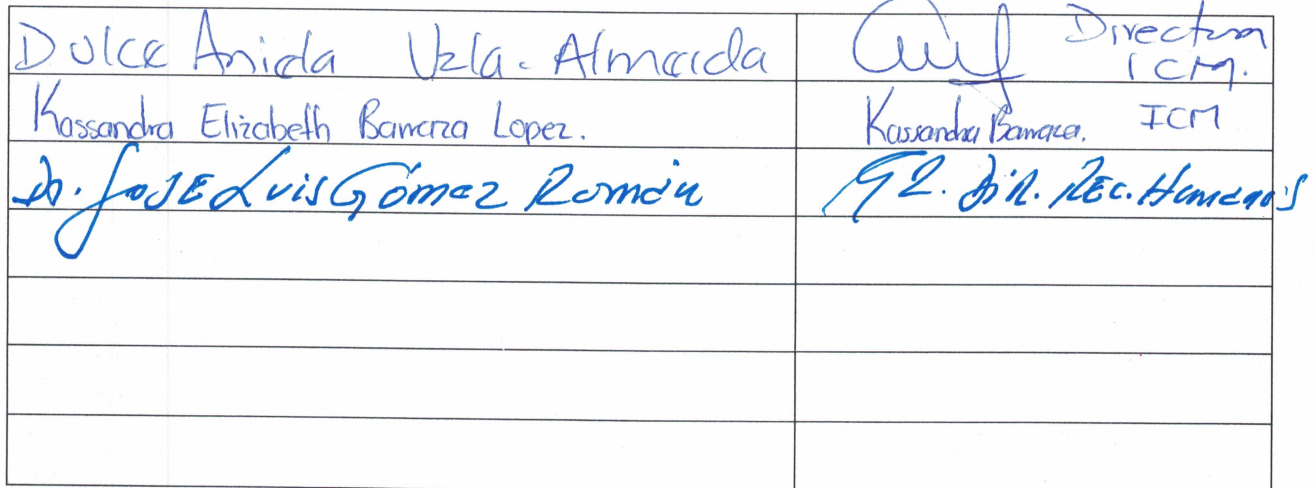 Dulce Anida Uzla. Almaida Directora
ICM.
Kassandra Elizabeth Barraza Lopez. Kassandra Barraza. ICM
Dr. JOSE LUIS Gómez Román DiR. REC. Humanos